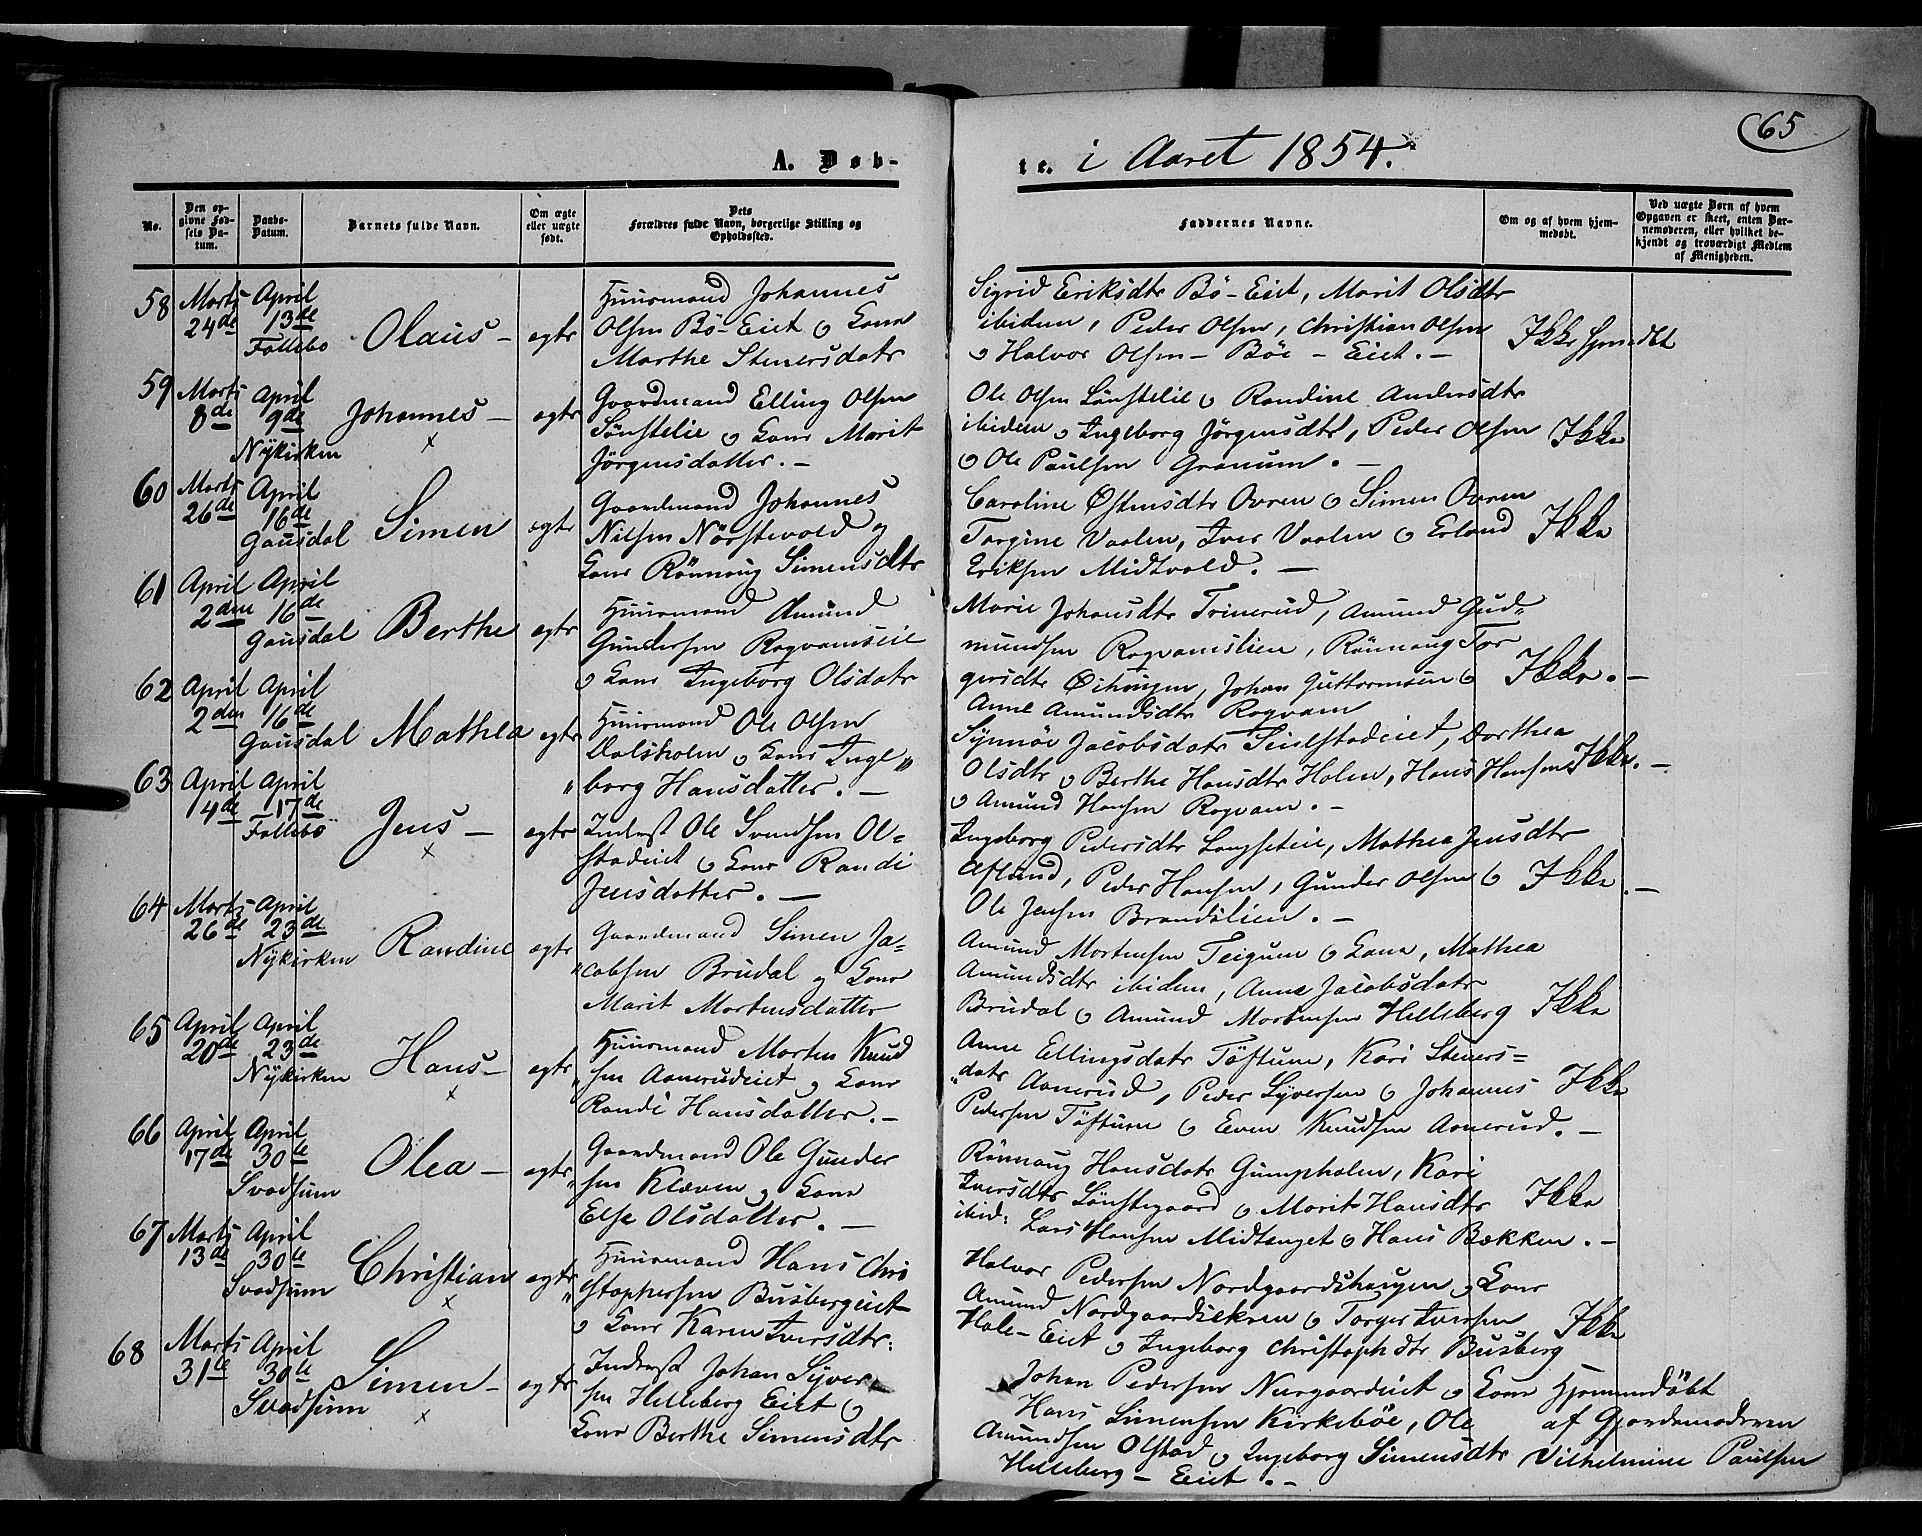 65
A. Døb-
te. i Aaret 1854.
No.
Den op-
givne Fød-
sels Da-
tum.
Daabs-
Datum.
Barnets fulde Navn.
Om ægte
eller uægte
født.
Dets
Forældres fulde Navn, borgerlige Stilling og
Opholdssted.
Faddernes Navne.
Om og af hvem hjem-
medøbt.
Ved uægte Børn af hvem
Opgaven er skeet, enten Bar-
nemoderen, eller hvilket be-
kjendt og troværdigt Medlem
af Menigheden.
58 Marts 24de April 13de Follebo Olaus – egte
Huusmand Johannes
Olsen Bö-Eiet o Kone
Marthe Stenersdatr
Sigrid Eriksdtr Bö-Eiet, Marit Olsdtr
ibidem, Peder Olsen, Christian Olsen
o Halvor Olsen – Böe – Eiet. –
Ikke hjemdbt
59 Marts 8de April 9de Nykirken Johannes – x egte
Gaardmand Elling Olsen
Sönstelie o Kone Marit
Jörgensdatter. –
Ole Olsen Lönstelie o Randine Andersdtr
ibidem o Ingeborg Jörgensdtr, Peder Olsen
o Ole Paulsen Granum. –
Ikke
60 Marts 26de April 16de Gausdal Simen egte
Gaardmand Johannes
Nilsen Nörstevold og
Kone Rönnaug Simensdtr
Caroline Østensdtr Ovren o Simen Ovren
Torgine Vaalen, Iver Vaalen o Erland
Eriksen Midtvold. –
Ikke
61 April 2den April 16de Gausdal Berthe egte
Huusmand Amund
Gundersen Rogvamseie
o Kone Ingeborg Olsdatr
Marie Johansdtr Trinerud, Amund Gud-
mundsen Rogvamslien, Rönnaug Tor
gersdtr Öihaugen, Johan Guttormsen o
Anne Amundsdtr Rogvam
Ikke. –
62 April 2den April 16de Gausdal Mathea egte
Huusmand Ole Olsen
Dalsholen o Kone Inge"
" borg Hansdatter. –
Synnöe Jacobsdatr Dorthea
Olsdtr o Berthe Hansdtr Holen, Hans Hansen
o Amund Hansen Rogvam. –
Ikke. –
63 April 14de April 17de Follebo Jens – x egte
Inderst Ole Svendsen Ol-
stadeiet o Kone Randi
Jensdatter. –
Ingeborg Pedersdtr Mathea Jensdtr
Aflund, Peder Hansen, Gunder Olsen o
Ole Jensen Brandslien. –
Ikke. –
64 Marts 26de April 23de Nykirken Randine egte
Gaardmand Simen Ja-
" cobsen Brudal og Kone
Marit Mortensdatter
Amund Mortensen Teigum o Kone, Mathea
Amundsdtr ibidem, Anne Jacobsdatr
Brudal o Amund Mortensen Helleberg
Ikke
65 April 20de April 23de Nykirken Hans – x egte
Huusmand Morten Knud
" sen Aanerudeiet o Kone
Randi Hansdatter. –
Anne Ellingsdatr Töftum, Kari Steners-
" datr Aanerud, Peder Syversen o Johannes
Pedersen Töftum o Even Knudsen Aanerud. –
Ikke
66 April 17de April 30te Svadsum Olea – egte
Gaardmand Ole Gunder
" sen Kleven o Kone
Else Olsdatter. –
Rönnaug Hansdatr Gumpholen, Kari
Iversdtr Lönstegaard o Marit Hansdtr
ibid: Lars Hansen Midtenget o Hans Bækken. –
Ikke
67 Marts 13de April 30te Svadsum Christian x egte
Huusmand Hans Chri
" stophersen Busbergeiet
o Kone Karen Iversdtr:
Halvor Pedersen Nordgaardshaugen o Kone
Amund Nordgaardsekren o Torger Iversen
Hole-Eiet o Ingeborg Christophdtr Busberg
Ikke
68 Marts 31te April 30te Svadsum Simen – x egte
Inderst Johan Syver
sen Helleberg Eiet o
Kone Berthe Simensdtr
Johan Pedersen Nergaardeiet o Kone
Hans Simensen Kirkeböe, Ole
Amundsen Olstad o Ingeborg Simensdtr
Helleberg – Eiet. –
Hjemmedöbt
af Gjordemoderen
Vilhelmine Paulsen